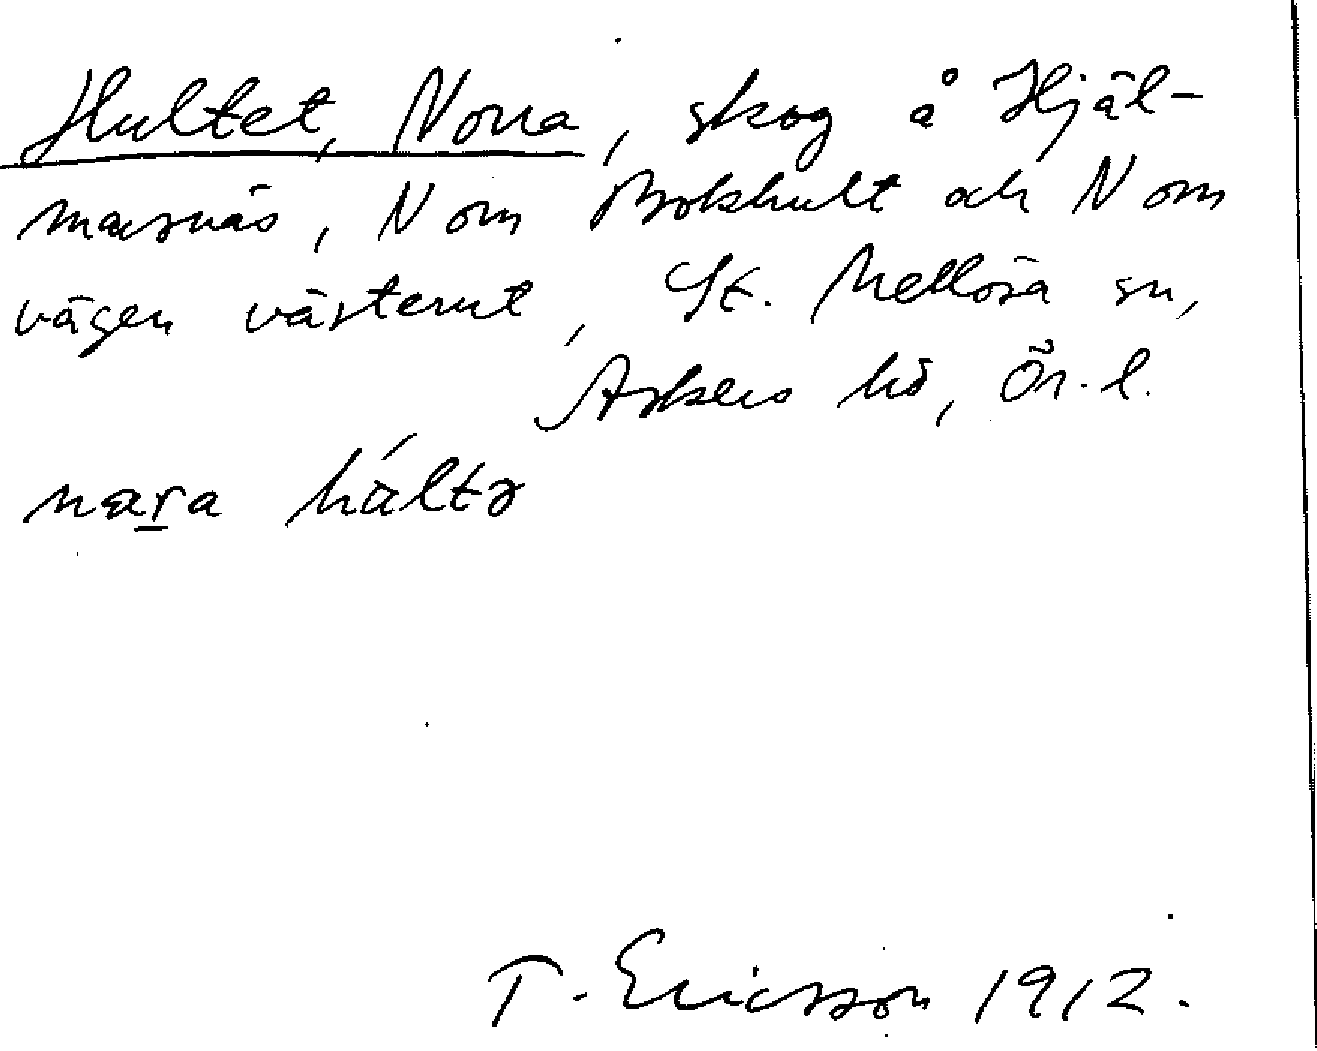 Hultet, Norra, skog å Hjäl-
marsnäs, N om Brokhult och N om
vägen västerut, St. Mellösa sn,
Askers hd, Ör. l.
næra hálta
T. Ericsson 1912.